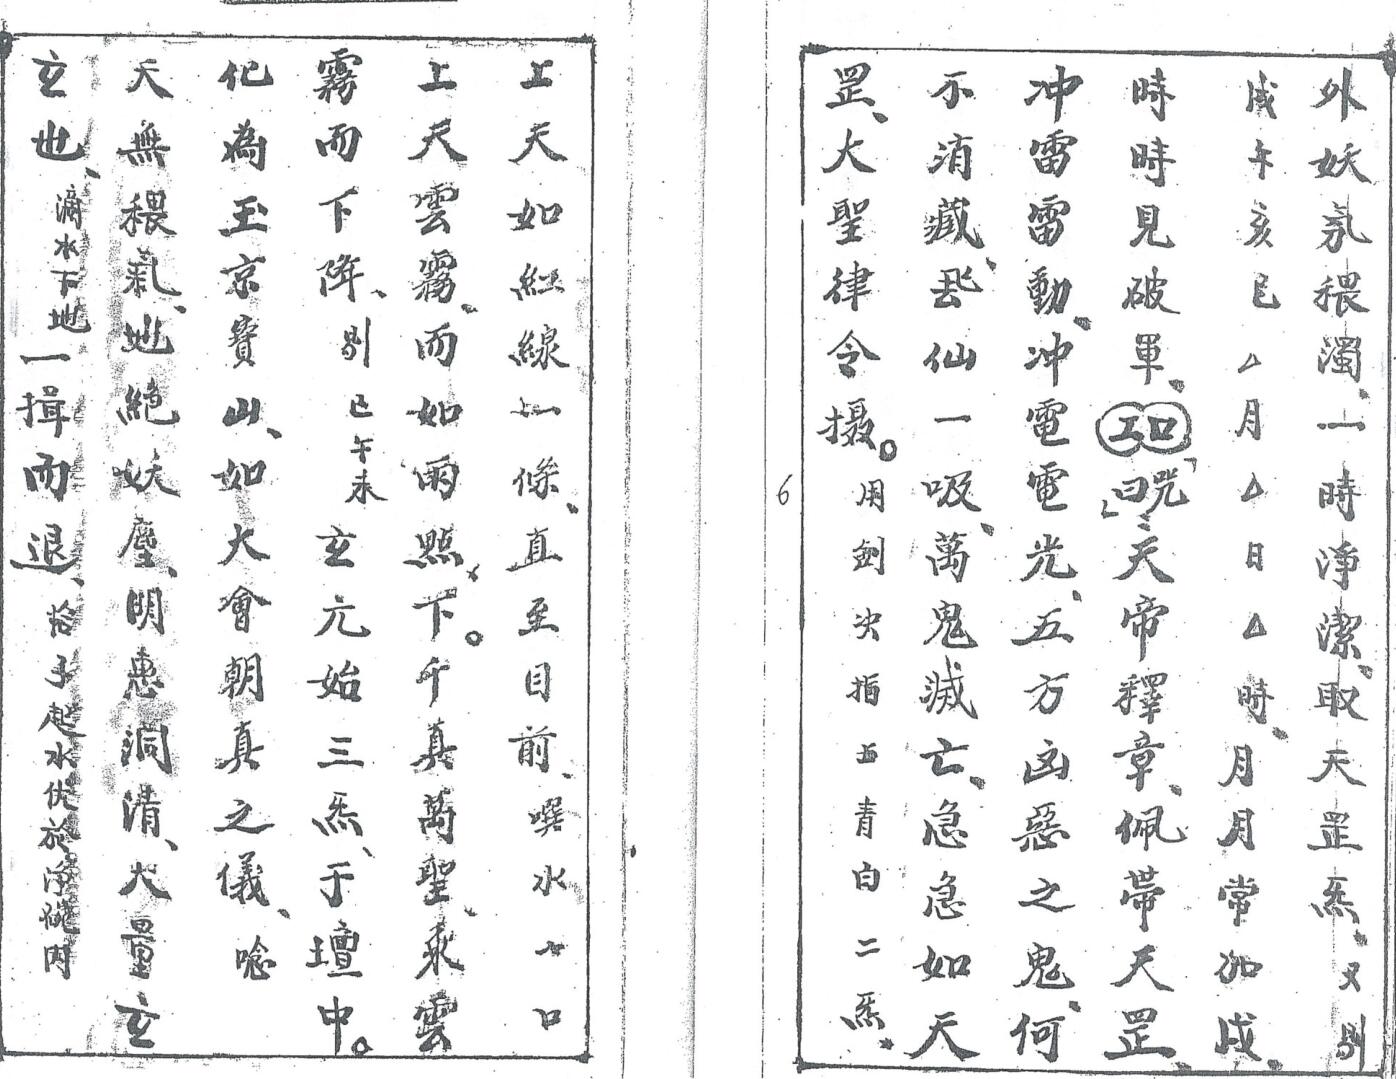 外妖氛猥濁、一時淨潔、取天罡炁、又剔
戌午亥巳△月△日△時、月月常加戌、
時時見破軍、工口咒曰、天帝釋章、佩帶天罡、
冲雷雷動、冲電電光、五方凶惡之鬼、何
不消藏、飛仙一吸、萬鬼滅亡、急急如天
罡、大聖律令摄。用劍決指五青白二炁、
6
上天如紅線一條、直至目前、噀水一口
上天雲霧、而如雨點、下。千真萬聖、乘雲
霧而下降、剔巳午未玄元始三炁、于壇中。
化為玉京寶山、如大會朝真之儀、唸
天無猥氣、地絕妖塵、明惠洞清、大量玄
玄也、滴水下地一揖而退、拾子起水伏於淨碗内